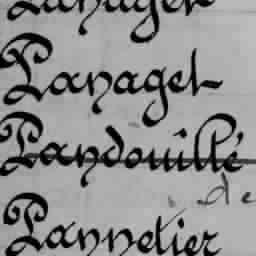 Panager
Panagel
Pandouillé
de
Pannetier